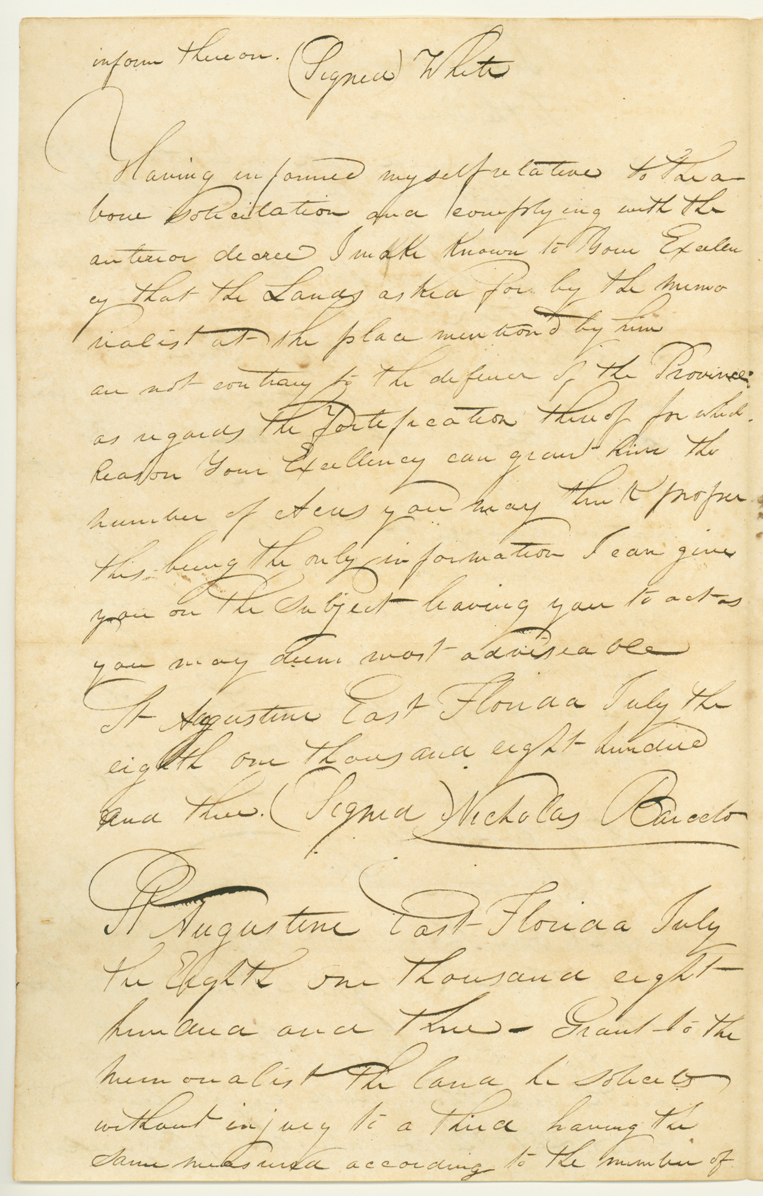 inform thereon. (Signed) White
Having informed myself relative to the a-
bove solicitation and complying with the
anterior decree I make known to Your Excelen
cy that the Lands asked for by the memo
rialist at the place mention'd by him
are not contrary to the defence of the Province
as regards the Fortification thereof for which
Reason Your Excellency can grant him the
number of Acres you may think proper
this being the only information I can give
you on the subject leaving you to act as
you may deem most adviseable
St Augustine East Florida July the
eighth one thousand eight hundred
and three. (Signed) Nicholas Barcelo
St Augustine East Florida July
the Eighth one thousand eight
hundred and three - Grant to the
memorialist the land he solicits
without injury to a third having the
same measured according to the number of